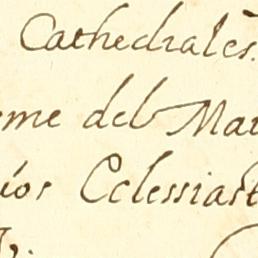 Cathedrales.
eme del Mar
ios Eclessiast